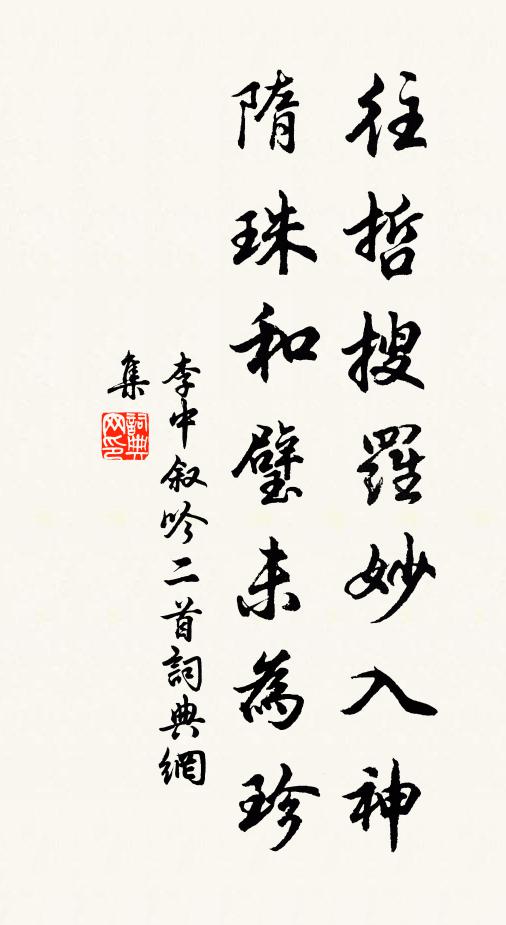 往哲搜羅妙入神
隋珠和璧未為珍
李中叙吟二首詞典網
集
詞典網印